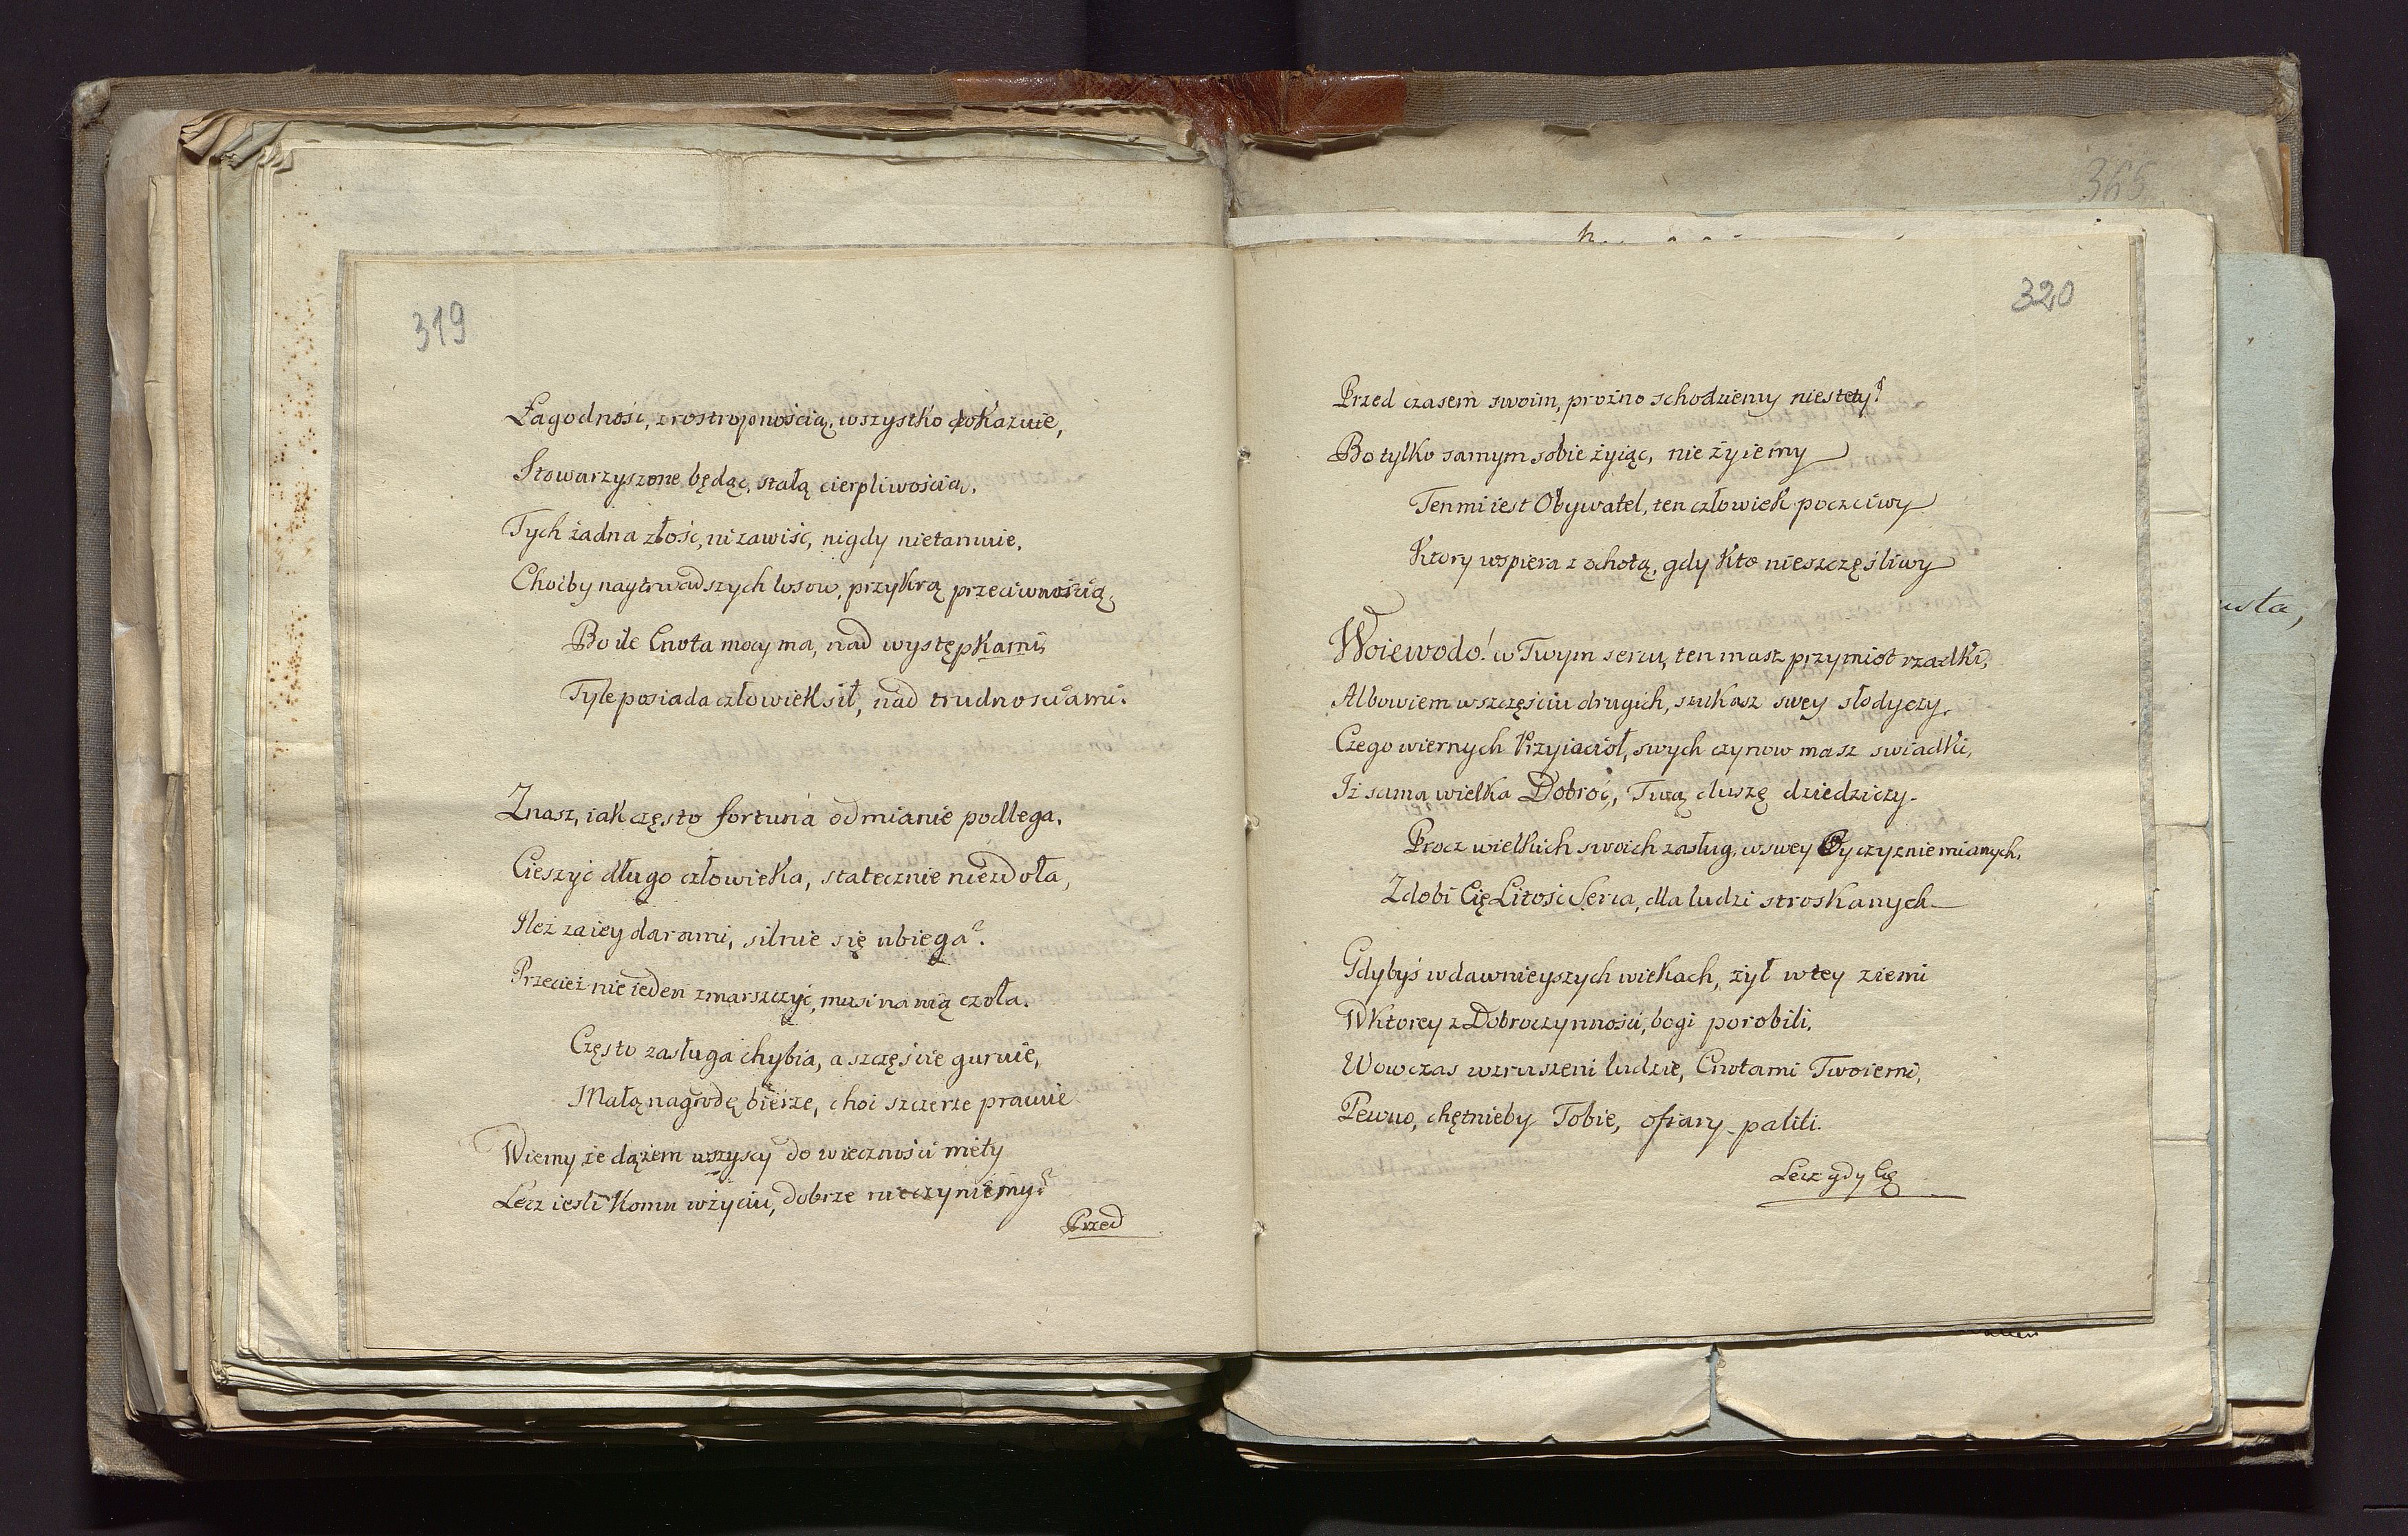 319
Łagodnośc, z rostropnością, wszystko dokazuie,
Stowarzyszone będąc, stałą cierpliwoścía,
Tych żadna złośc, ni zawiśc, nigdy nietamuie,
Choćby naytwadszych losow, przykrą przeciwnością,
Bo ile Cnota mocy ma, nad występkami,
Tyle posiada człowiek sił, nad trudnosciami.
Znasz, iak często fortuna odmianie podlega,
Cieszyć długo człowieka, statecznie niezdoła,
Ileż za iey darami, silnie się ubiega?
Przecież nie ieden zmarszczyć, musi na nią czoła.
Często zasługa chybia, a szczęście guruie,
Małą nagrodę bierze, choć szczerze pracuie
Wiemy że dążem wszyscy do wieczności mety
Lecz iesli komu wżyciu, dobrze nieczyniemy?
Przed
320
Przed czasem swoim, prożno schodziemy niestety!
Bo tylko samym sobie żyiąc, nie żyiemy
Ten mi iest Obywatel, ten człowiek poczciwy
Ktory wspiera z ochotą, gdy kto nieszczęśliwy
Woiewodo! w Twym sercu, ten masz przymiot rzadki,
Albowiem wszczęściu drugich, szukasz swey słodyczy,
Czego wiernych Przyiacioł, swych czynow masz swiadki,
Iż sama wielka Dobroć, Twą duszę dziedziczy.
Procz wielkich swoich zasług, w swey Oyczyznie mianych,
Zdobi Cię Litość Serca, dla ludzi stroskanych
Gdybyś wdawnieyszych wiekach, żył w tey ziemi
Wktorey z Dobroczynności, bogi porobili,
Wowczas wzruszeni ludzie, Cnotami Twoiemi,
Pewno, chętnieby Tobie, ofiary palili.
Lecz gdy Cię
365